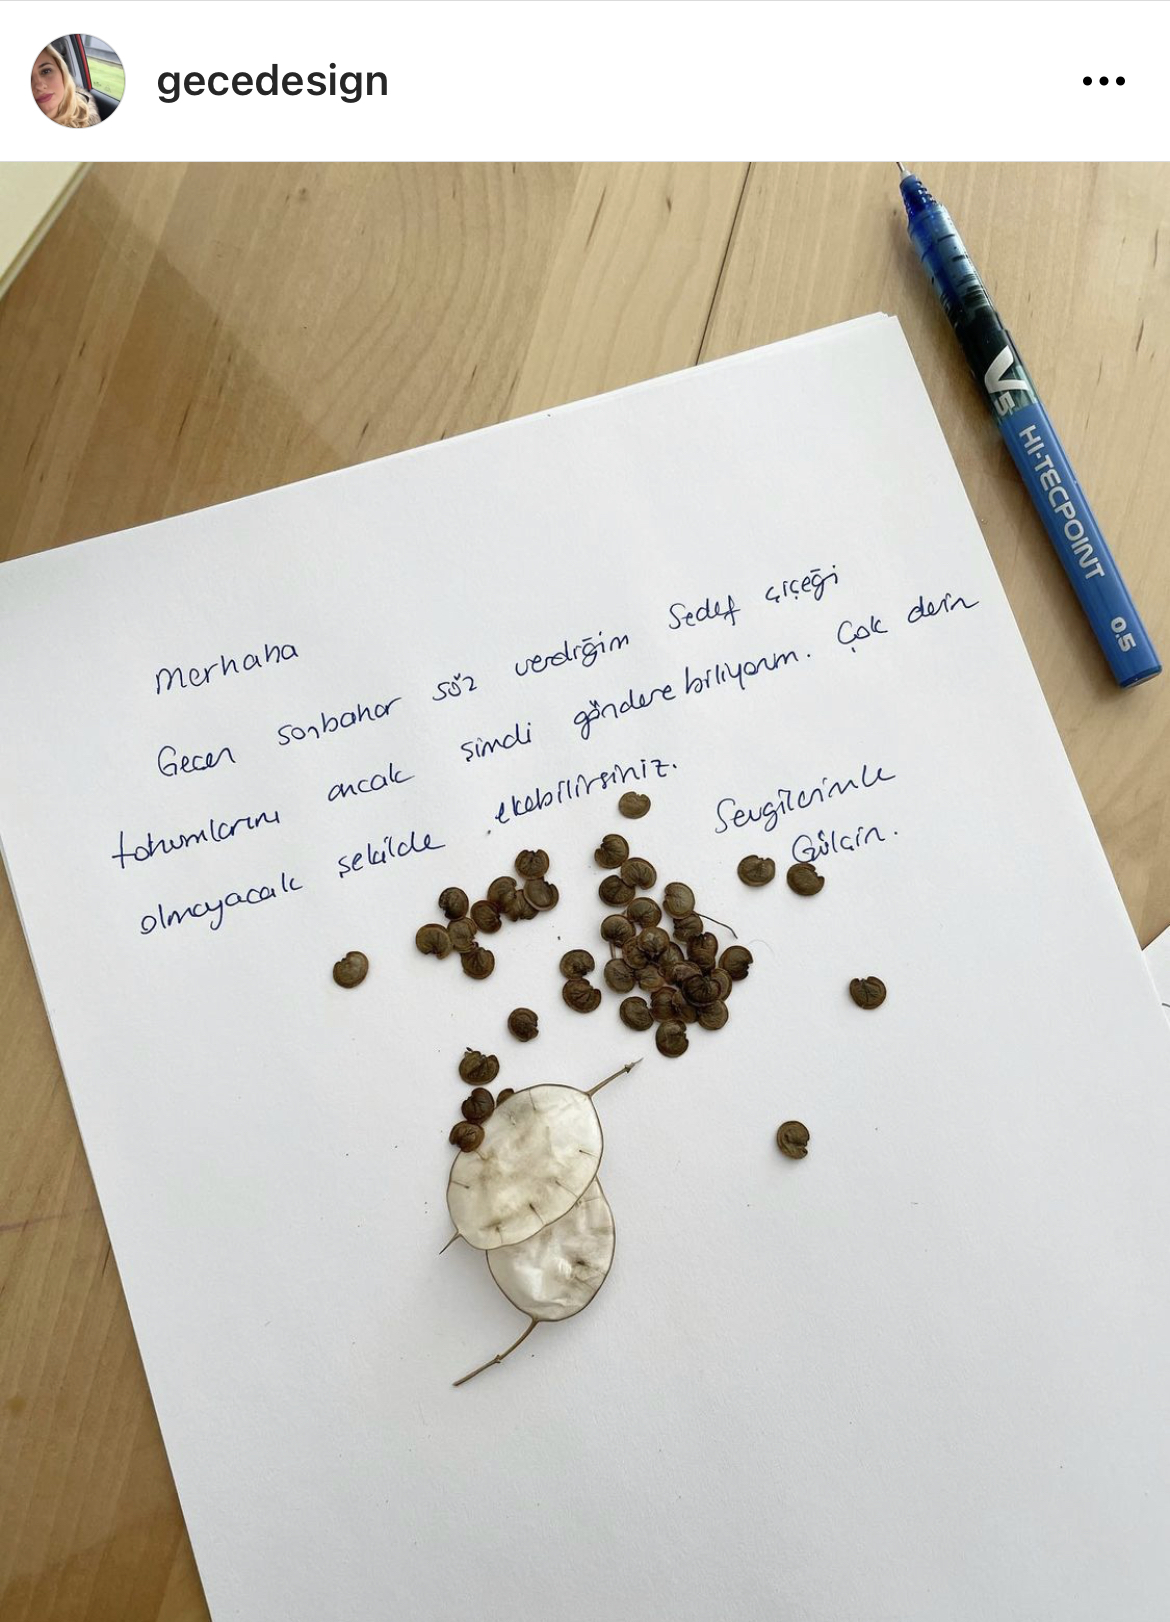 gecedesign
V5
HI-TECPOINT
0.5
Merhaha
Geçen sonbahar söz verdiğim Sedef çiçeği
tohumlarını ancak şimdi göndere biliyorum. Çok derin
olmayacak şekilde ekebilirsiniz.
Sevgilerimle
Gülçin.